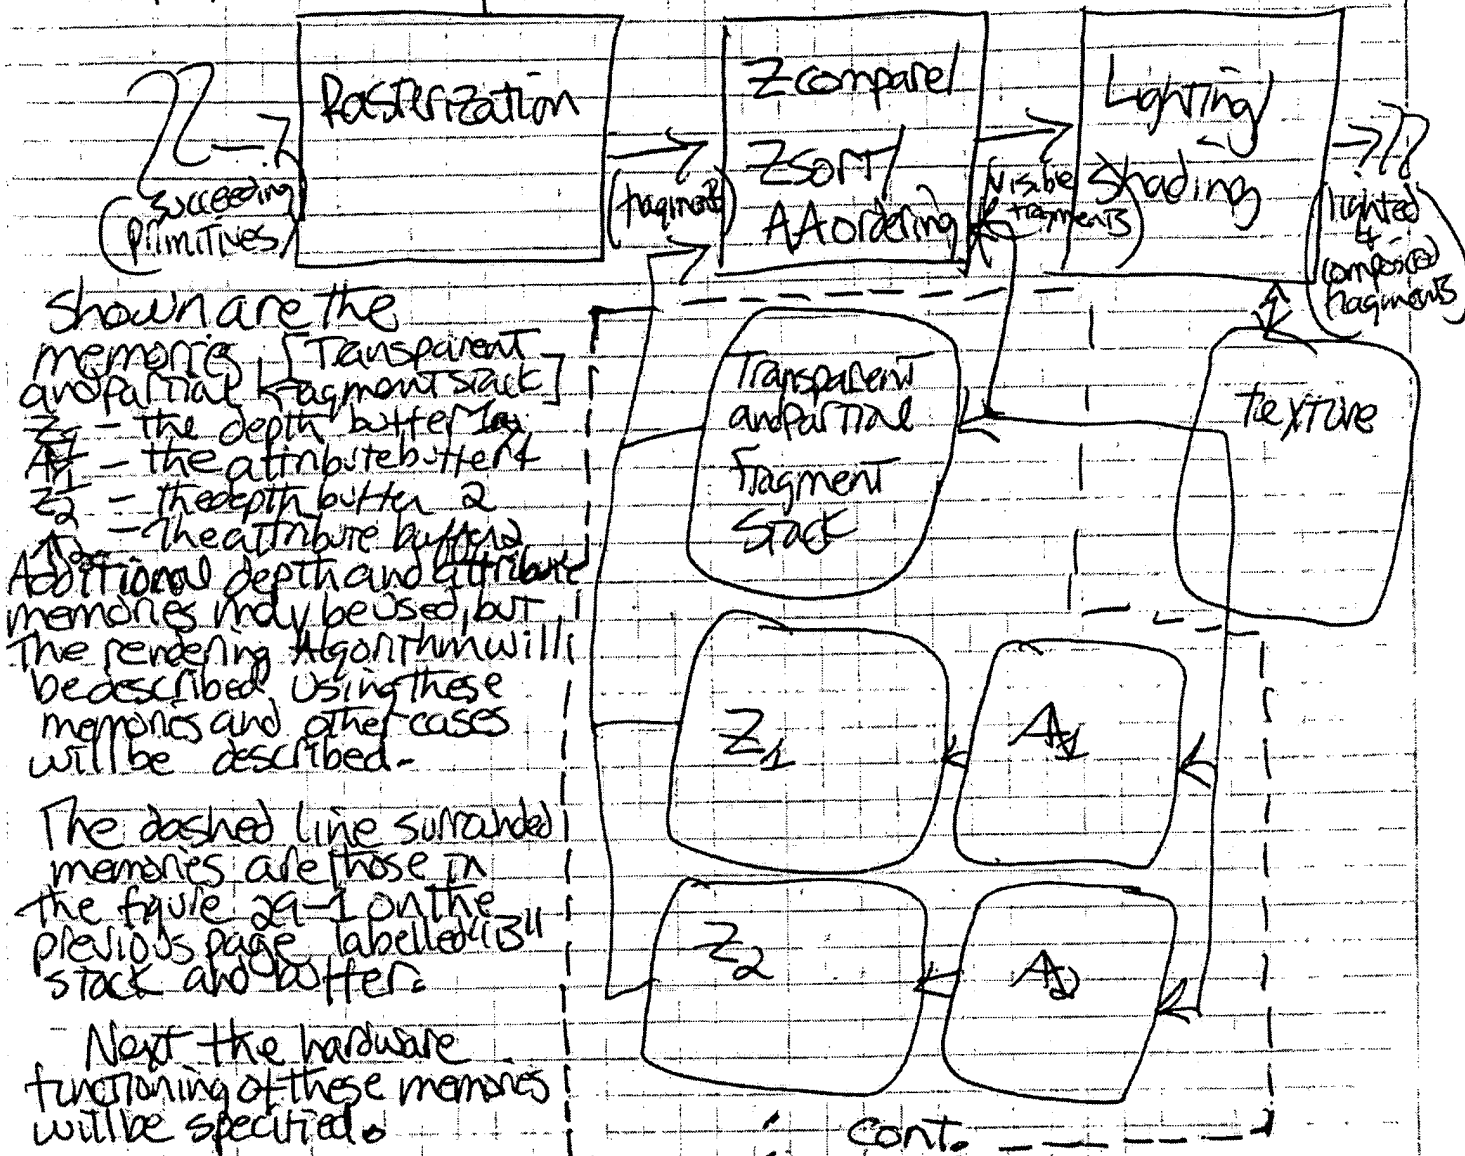 Rasterization
Zcompare/
Zsort/
AAordering
Lighting/
Shading
(succeeding
primitives)
(fragments)
(visible
fragments)
(lighted
+
composed
fragments)
Shown are the
memories [Transparent
and partial fragment stack]
Z1 - the depth buffer 1
A1 - the attribute buffer 1
Z2 - the depth buffer 2
- the attribute buffer 2
Additional depth and attribute
memories may be used, but
the rendering Algorithm will
be described using these
memories and other cases
will be described.
The dashed line surrounded
memories are those in
the figure 29-1 on the
previous page labelled "B"
stack and buffer.
Next the hardware
functioning of these memories
will be specified.
Transparent
and Partial
Fragment
Stack
Texture
Z1
A1
Z2
A2
cont.